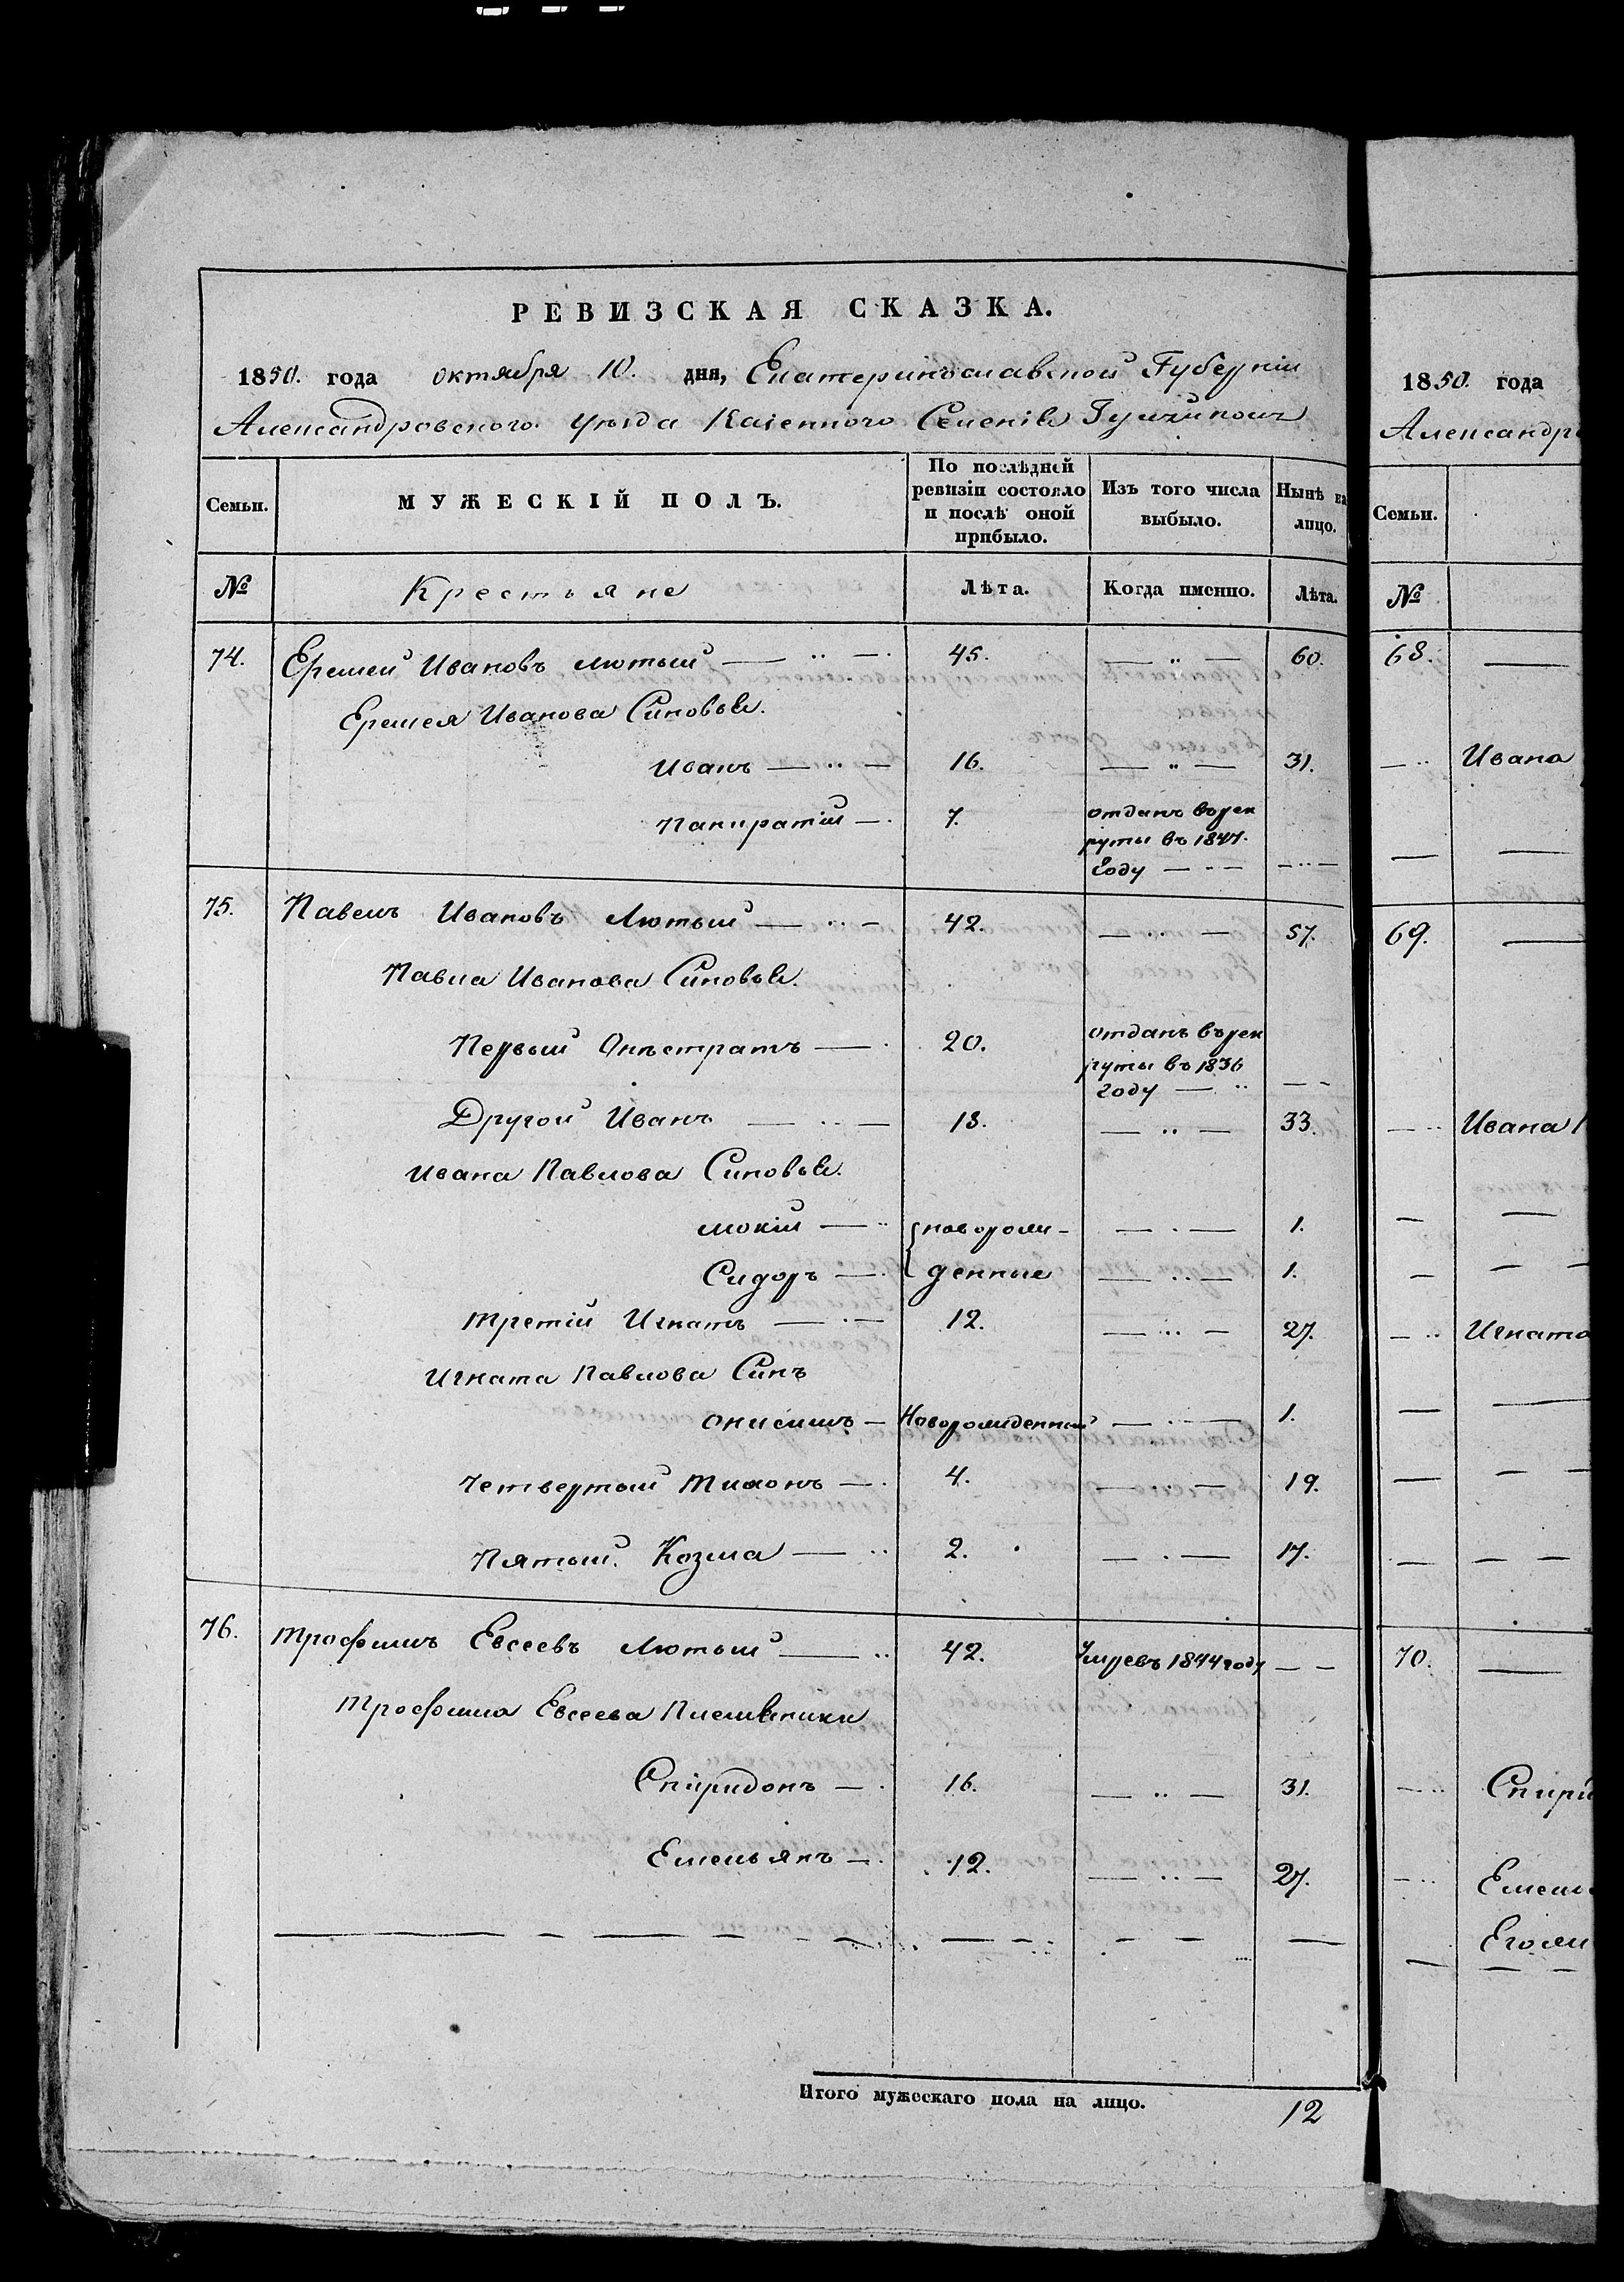 РЕВИЗСКАЯ СКАЗКА.
1850. года октября 10. дня, Екатеринославской Губерніи
Александровского уѣзда Казенного Селенія
МУЖЕСКІЙ ПОЛЪ.
Семьи.
По послѣдней
ревизіи состояло
и послѣ оной
прибыло.
Изъ того числа
выбыло.
Нынѣ на
лицо.
№ Крестьяне Лѣта. Когда именно. Лѣта.
74. Еремей Ивановъ Лютый — 45. — 60.
Еремея Иванова Синовья.
Иванъ — 16. — 31.
Панкратій — 7. отданъ въ рек
руты въ 1847.
Году —
75. Павелъ Ивановъ Лютый — 42. — 57.
Павла Иванова Синовья.
Первый Онистратъ — 20. отданъ въ рек
руты въ 1836
году —
Другой Иванъ — 18. — 33.
Ивана Павлова Синовья.
Мокій — новорож- — 1.
Сидоръ — денные — 1.
Третій Игнатъ — 12. — 27.
Игната Павлова Синъ
Онисимъ — Новорожденный — 1.
Четвертый Тихонъ — 4. — 19.
Пятый. Козма — 2. — 17.
76. Трофимъ Евсеевъ Лютый — 42. Умре въ 1844 году —
Трофима Евсеева Племянники
Спиридонъ — 16. — 31.
Емельянъ — 12. — 27.
Итого мужескаго пола на лицо. 12
1850. года
Александро
Семьи.
№
68.
Ивана
69.
Ивана
Игната
70.
Спирид
Емель
Его